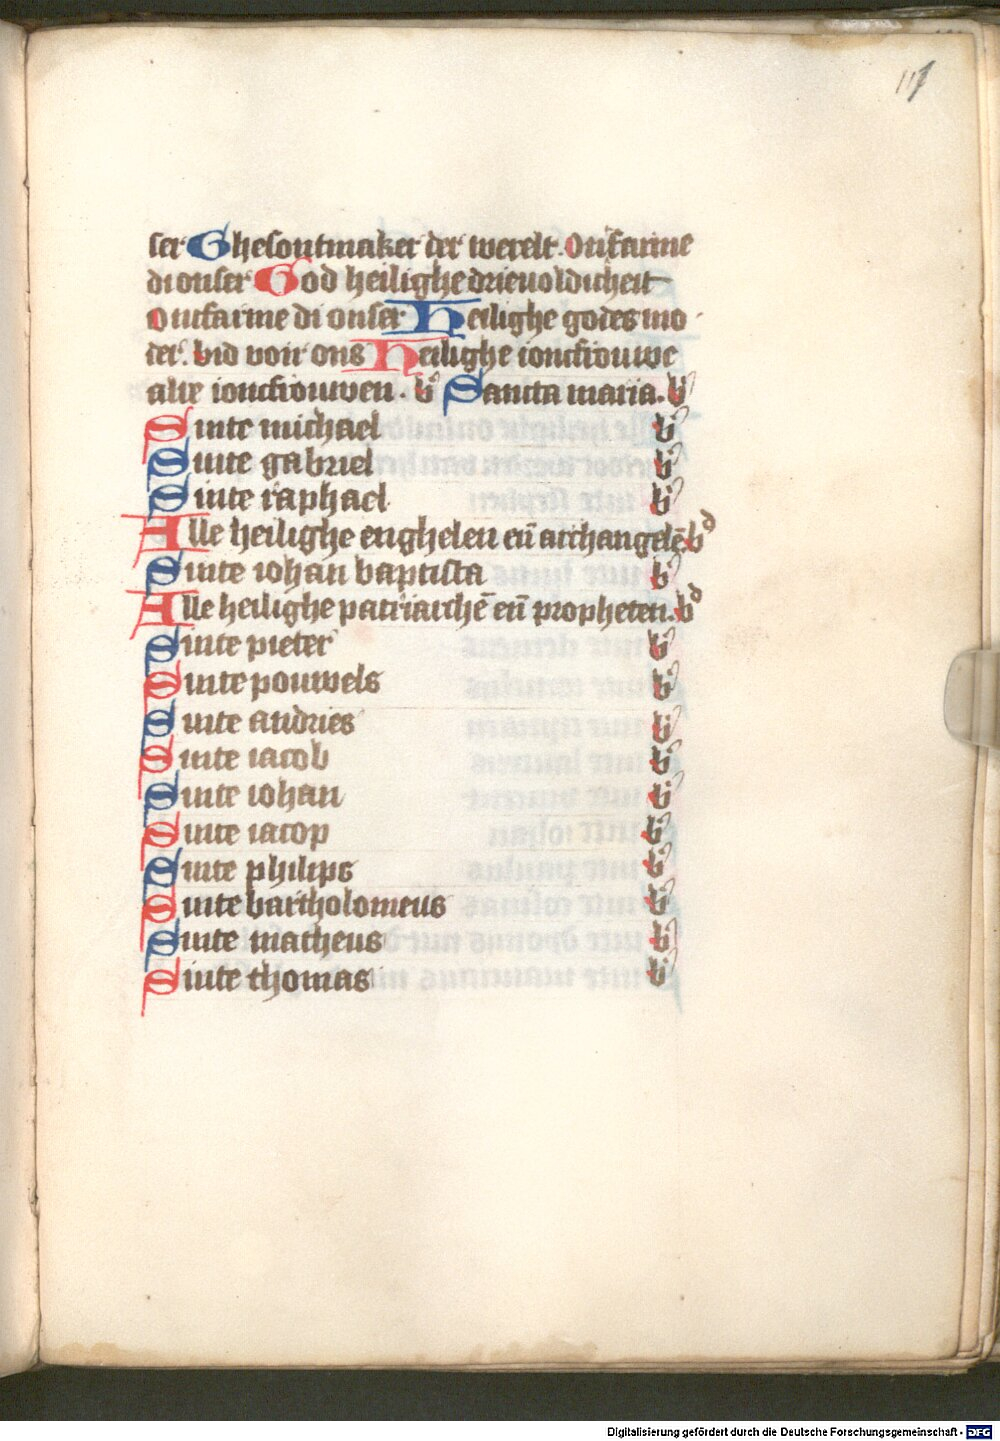 111
ser Ghesontmaker der werelt. Ontfarme
di onser God heilighe drieuoldicheit
Ontfarme di onser Heilighe godes mo
der. bid voir ons Heilighe ioncfrouwe
alre ioncfrouwen. b Sancta maria. b
Sinte michael b
Sinte gabriel b
Sinte raphael b
Alle heilighe enghelen eñ archangelē bd
Sinte iohan baptista b
Alle heilighe patriarchē eñ propheten. bd
Sinte pieter b
Sinte pouwels b
Sinte andries b
Sinte iacob b
Sinte iohan b
Sinte iacop b
Sinte philips b
Sinte bartholomeus b
Sinte matheus b
Sinte thomas b
Digitalisierung gefördert durch die Deutsche Forschungsgemeinschaft - DFG